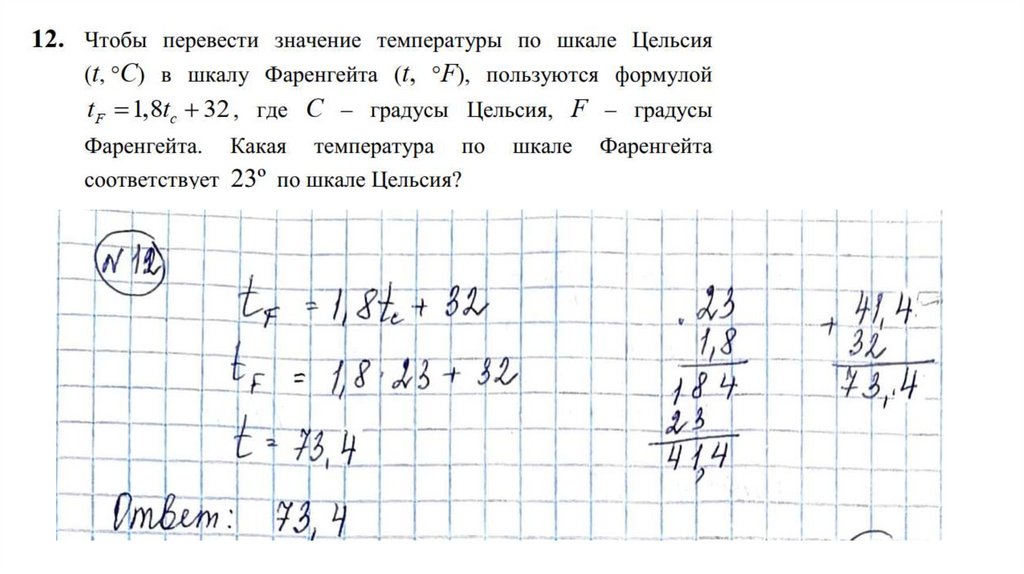 12. Чтобы перевести значение температуры по шкале Цельсия
(t, °C) в шкалу Фаренгейта (t, °F), пользуются формулой
t_F = 1,8t_c + 32, где C – градусы Цельсия, F – градусы
Фаренгейта. Какая температура по шкале Фаренгейта
соответствует 23º по шкале Цельсия?
N 12
t_F = 1,8t_c + 32
t_F = 1,8 · 23 + 32
t = 73,4
Ответ: 73,4
. 23
1,8
184
23
41,4
+ 41,4
32
73,4